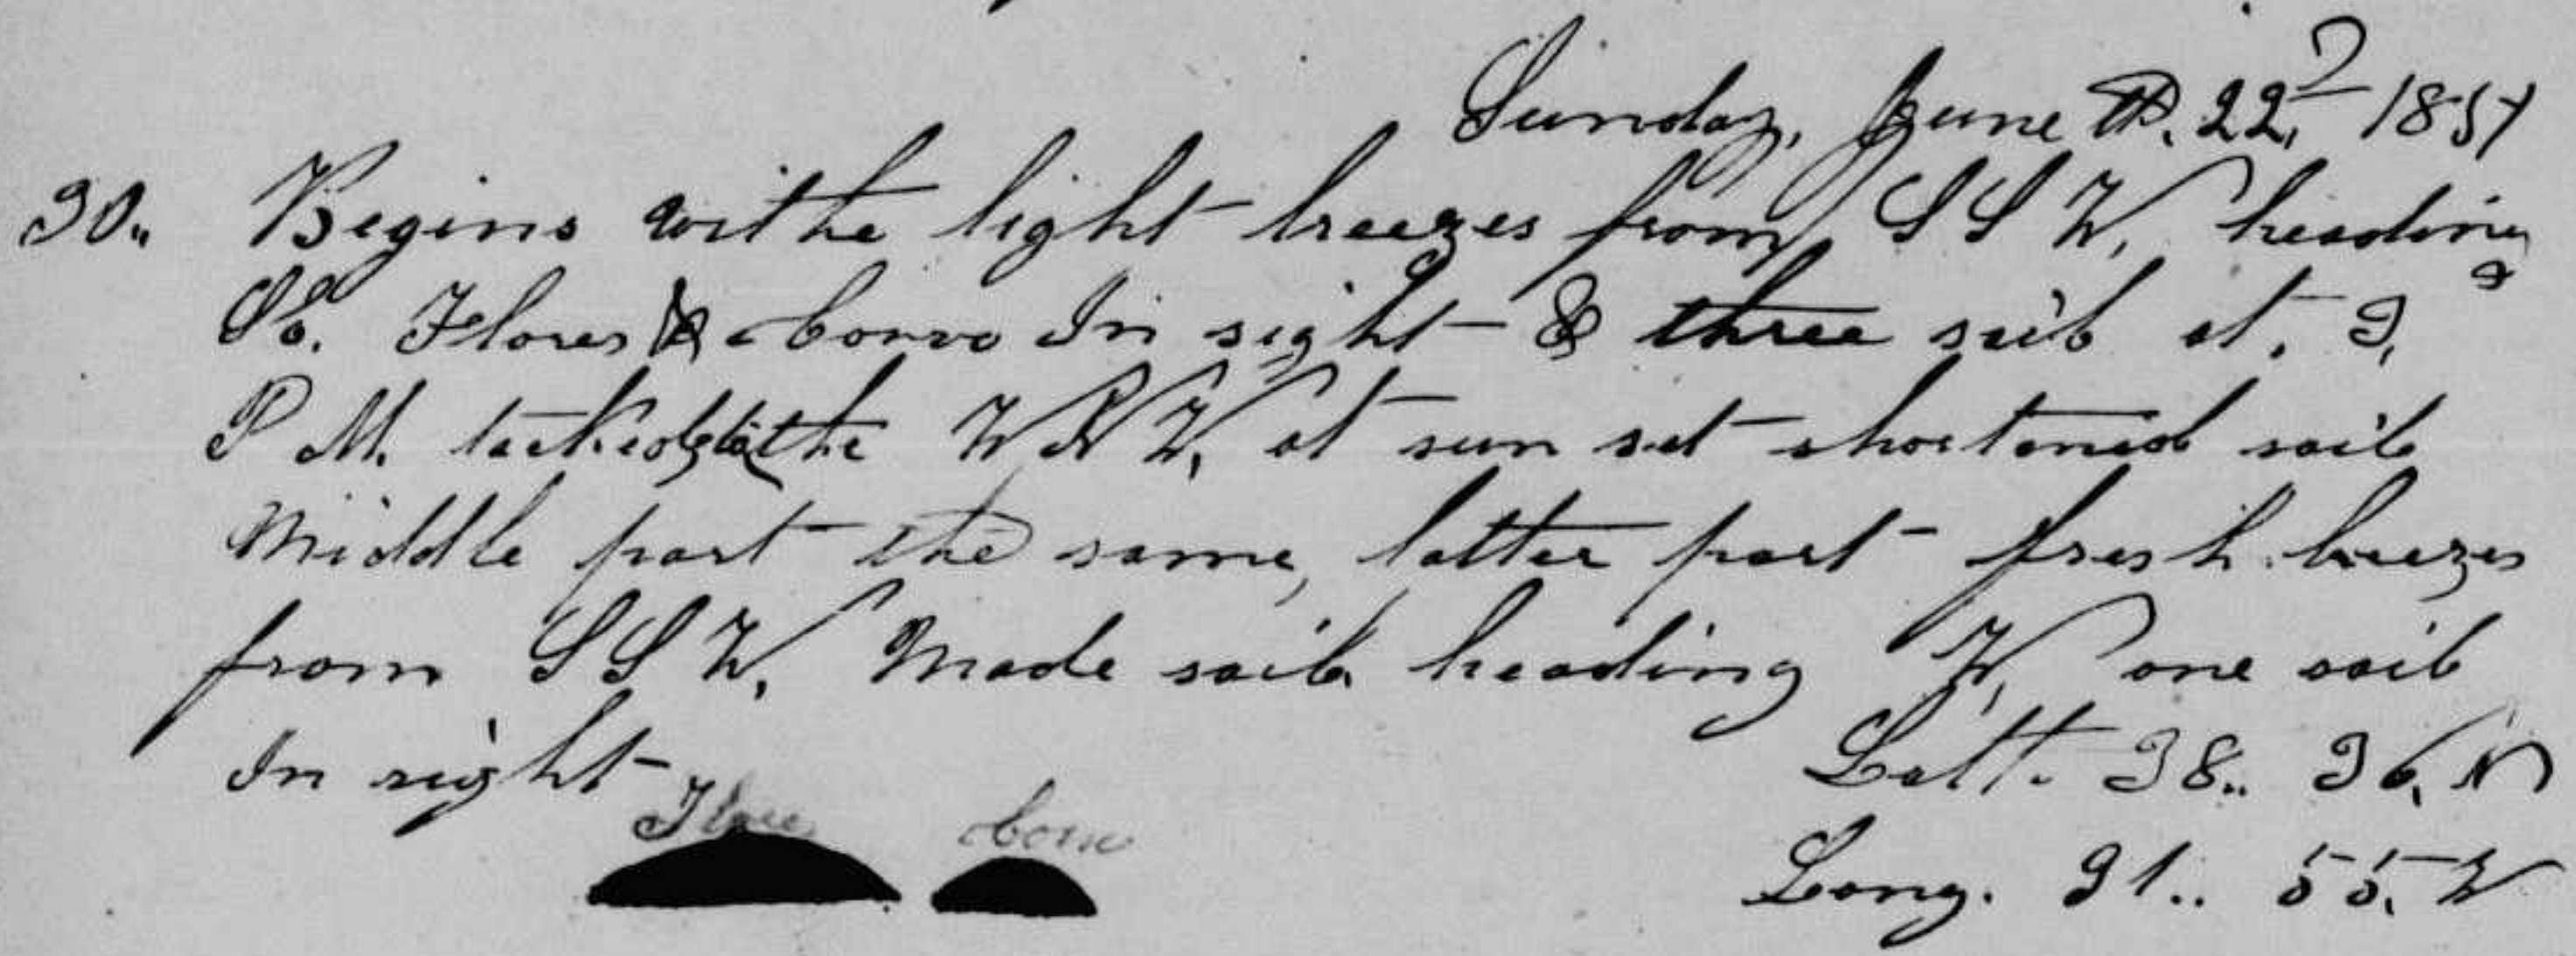 Sunday, June 22d 1851
30.. Begins withe light breezes from S S W, heading
So. Flores & Corvo In sight & three sail at. 3,
P M. tacked to the W N W, at sun set shortened sail
Middle part the same, latter part fresh breezes
from S S W, Made sail heading W, one sail
In sight
Latt. 38.. 36. N
Flores Corvo
Long. 31.. 55. W